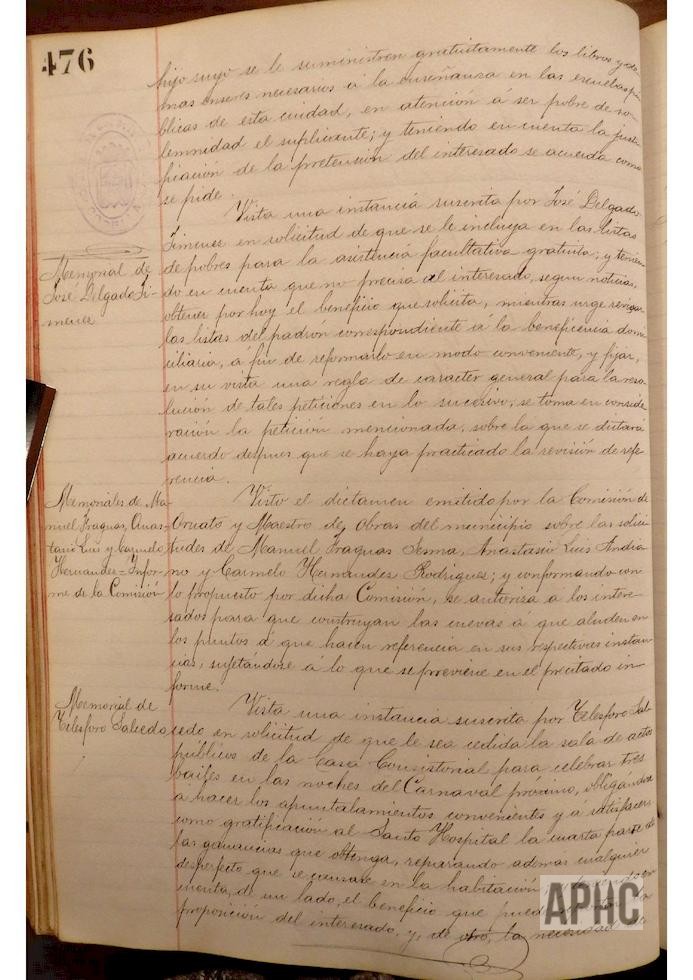 476
hijo suyo se le suministren gratuitamente los libros y de-
mas enseres necesarios á la enseñanza en las escuelas pú-
blicas de esta ciudad, en atención á ser pobre de so-
lemnidad el suplicante; y teniendo en cuenta la justi-
ficación de la pretensión del interesado se acuerda como
se pide.
Memorial de
José Delgado Ji-
menez
Vista una instancia suscrita por José Delgado
Jimenez en solicitud de que se le incluya en las listas
de pobres para la asistencia facultativa gratuita; y tenien-
do en cuenta que no precisa al interesado, segun noticias,
obtener por hoy el beneficio que solicita, mientras urge
las listas del padrón correspondiente á la beneficencia domi-
ciliaria, á fin de reformarlo en modo conveniente, y fijar,
en su vista una regla de caracter general para la reso-
lución de tales peticiones en lo sucesivo; se toma en conside-
ración la petición mencionada, sobre la que se dictará
acuerdo despues que se haya practicado la revisión de refe-
rencia.
Memoriales de Ma-
nuel Fraguas, Anas-
tasio Luis y Carmelo
Hernandez = Infor-
me de la Comisión
Visto el dictamen emitido por la Comisión de
Ornato y Maestro de obras del municipio sobre las solici-
tudes de Manuel Fraguas Sesma, Anastasio Luis Andia-
no y Carmelo Hernandez Rodriguez; y conformando con
lo propuesto por dicha Comisión, se autoriza á los intere-
sados para que construyan las cuevas á que aluden en
los puntos á que hacen referencia en sus respectivas instan-
cias, sujetándose á lo que se previene en el precitado in-
forme.
Memorial de
Telesforo Salcedo
Vista una instancia suscrita por Telesforo Sal-
cedo en solicitud de que le sea cedida la sala de actos
públicos de la Casa Consistorial para celebrar tres
bailes en las noches del Carnaval próximo, obligandose
á hacer los apuntalamientos convenientes y á satisfacer
como gratificación al Santo Hospital la cuarta parte de
las ganancias que obtenga, reparando ademas cualquier
desperfecto que se causare en la habitación; y teniendo en
cuenta, de un lado, el beneficio que puede la
proposición del interesado, y, de otro, la necesidad de
APHC